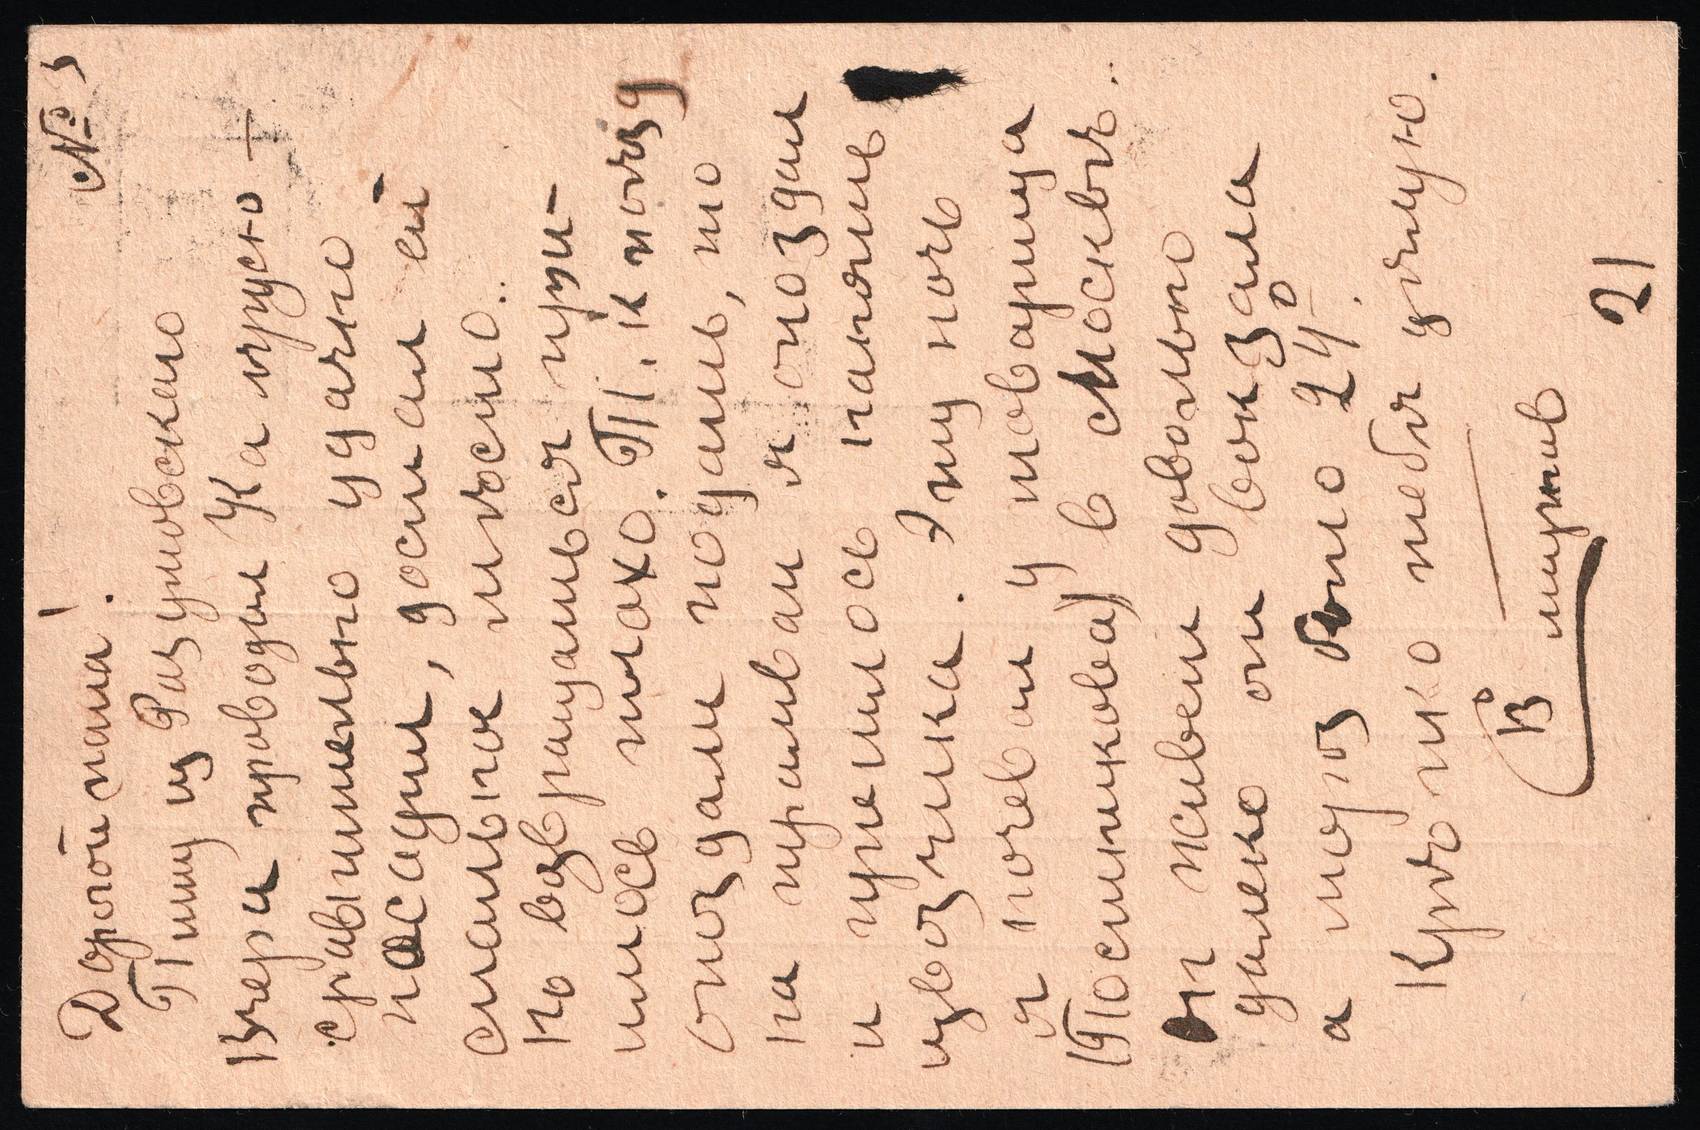 № 3
Дорогой папа!
Пишу из Разумовскаго
Вчера проводил Катрусю —
сравнительно удачно
посадил, достали ей
спальное место..
Но возвращаться приш-
лось плохо. Т. к поезд
опоздали подать, то
на трамвай я опоздал
и пришлось нанять
извозчика. Эту ночь
я ночевал у товарища
(Постникова) в Москве..
Он живет довольно
далеко от вокзала
а мороз был 24°.
Крепко тебя целую.
В
21